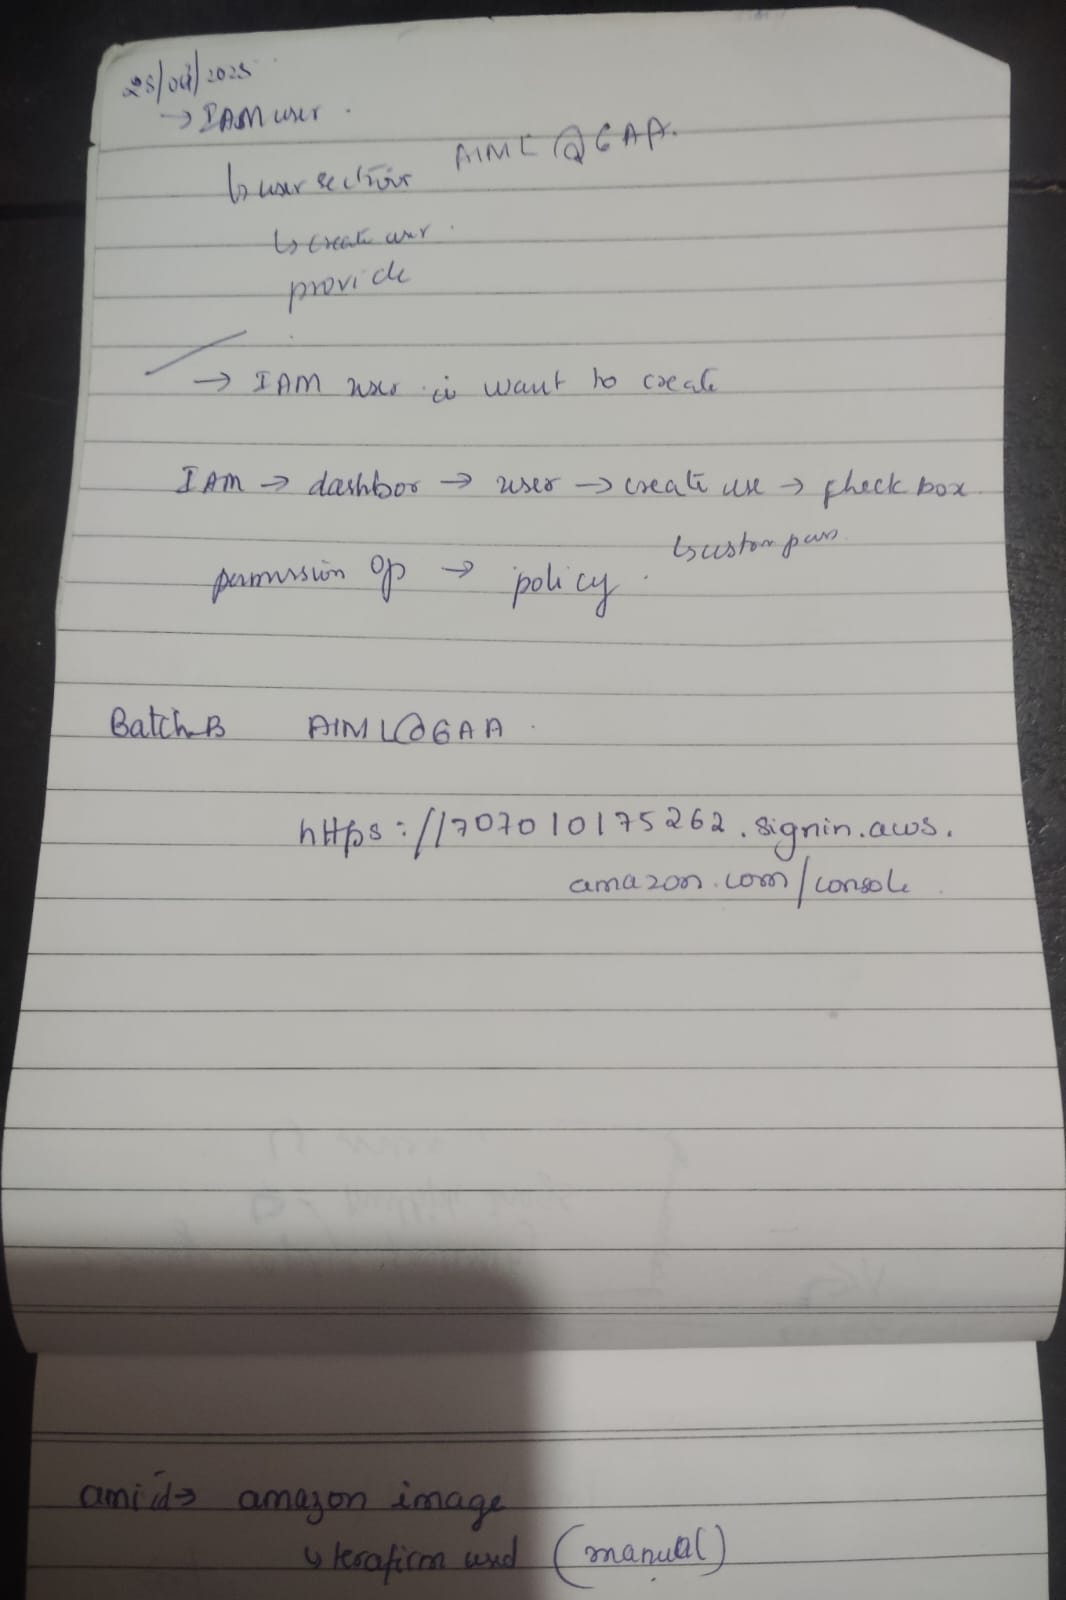 28/04/2025
→ IAM user.
↳ user section AIML@6AA.
↳ create user.
provide
→ IAM user is want to create
IAM → dashbor → user → create use → check box
↳ custom pass
permission Op → policy.
Batch B AIML@6AA.
https://707010175262.signin.aws.
amazon.com/console.
ami id → amazon image
↳ terafirm used (manual)